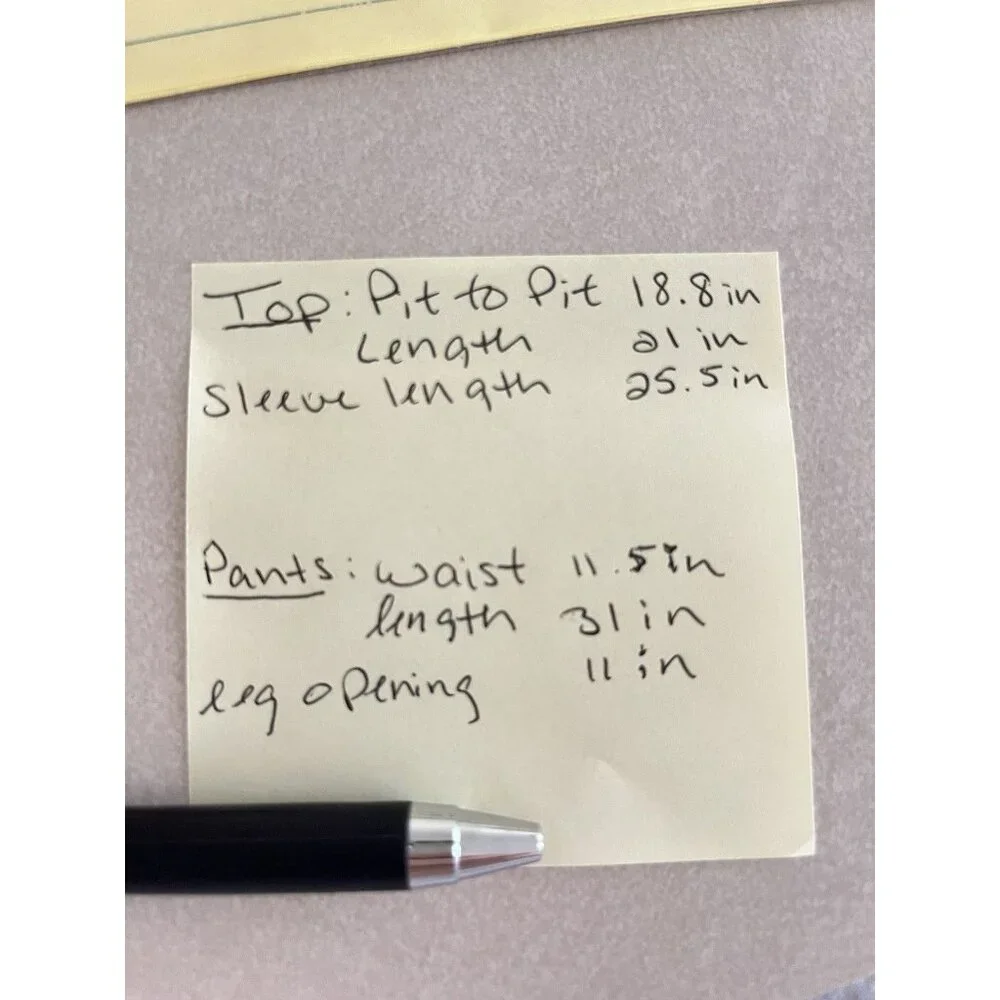 Top: Pit to Pit 18.8in
Length 21 in
Sleeve length 25.5in
Pants: waist 11.5in
length 31in
leg opening 11 in